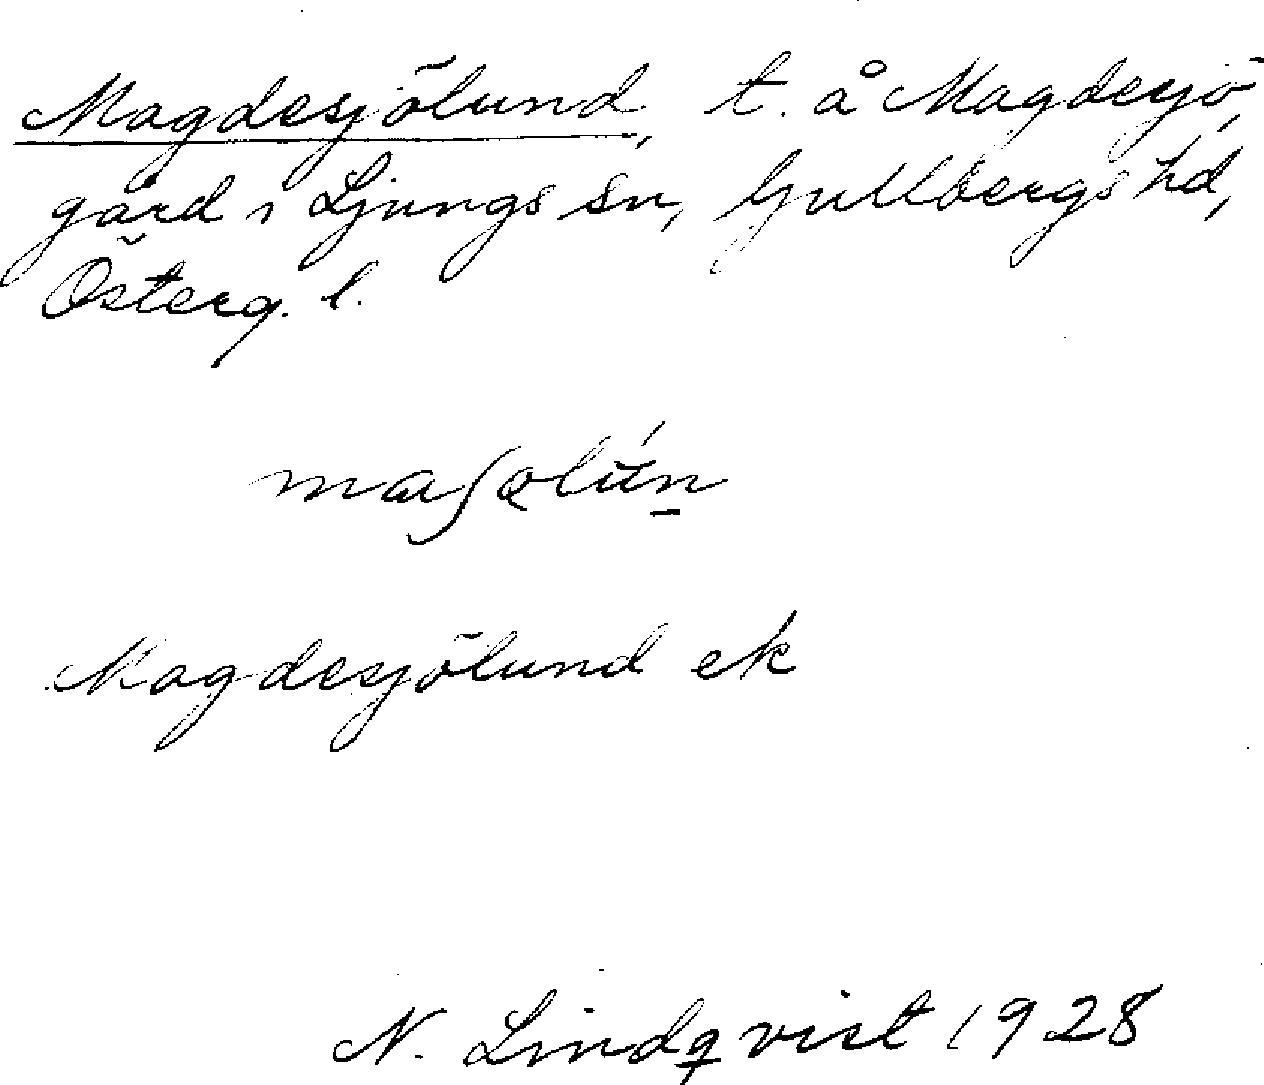 Magdesjölund, t. å Magdesjö,
gård i Ljungs sn, Gullbergs hd,
Österg. l.
Magdesjölund ek
N. Lindqvist 1928